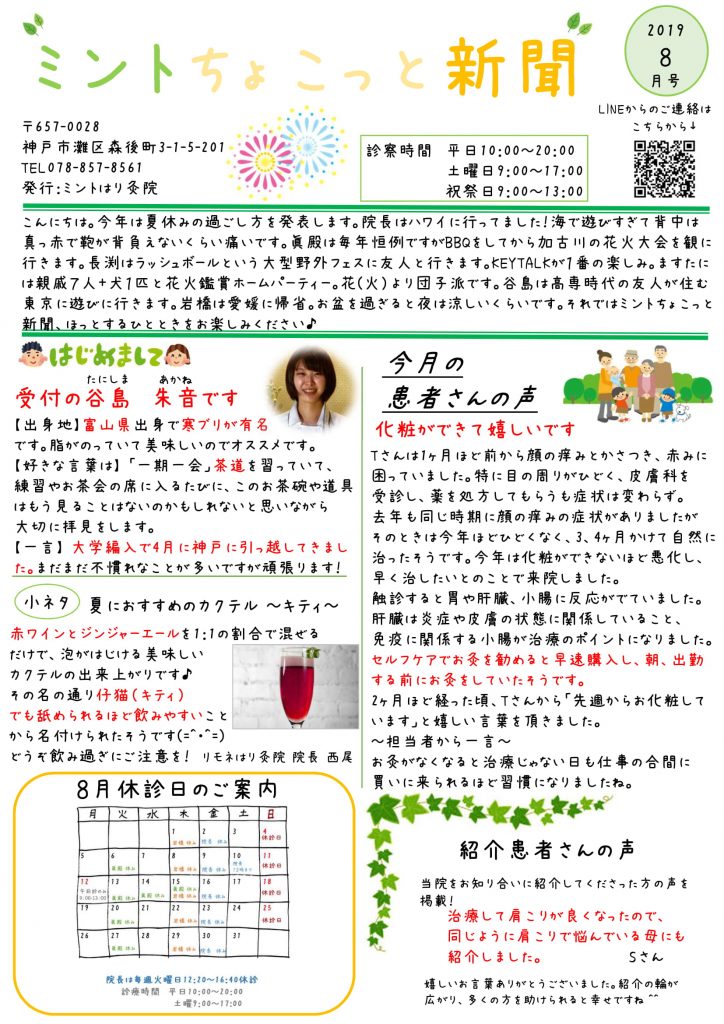 ミントちょこっと新聞
2019
8
月号
LINEからのご連絡は
こちらから↓
〒657-0028
神戸市灘区森後町3-1-5-201
TEL078-857-8561
発行:ミントはり灸院
診察時間 平日10:00～20:00
土曜日9:00～17:00
祝祭日9:00～13:00
こんにちは。今年は夏休みの過ごし方を発表します。院長はハワイに行ってました！海で遊びすぎて背中は
真っ赤で鞄が背負えないくらい痛いです。眞殿は毎年恒例ですがBBQをしてから加古川の花火大会を観に
行きます。長渕はラッシュボールという大型野外フェスに友人と行きます。KEYTALKが1番の楽しみ。ますだに
は親戚7人+犬1匹と花火鑑賞ホームパーティー。花(火)より団子派です。谷島は高専時代の友人が住む
東京に遊びに行きます。岩橋は愛媛に帰省。お盆を過ぎると夜は涼しいくらいです。それではミントちょこっと
新聞、ほっとするひとときをお楽しみください♪
はじめまして
たにしま あかね
受付の谷島 朱音です
【出身地】富山県出身で寒ブリが有名
です。脂がのっていて美味しいのでオススメです。
【好きな言葉は】「一期一会」茶道を習っていて、
練習やお茶会の席に入るたびに、このお茶碗や道具
はもう見ることはないのかもしれないと思いながら
大切に拝見をします。
【一言】大学編入で4月に神戸に引っ越してきまし
た。まだまだ不慣れなことが多いですが頑張ります！
小ネタ 夏におすすめのカクテル ～キティ～
赤ワインとジンジャーエールを1:1の割合で混ぜる
だけで、泡がはじける美味しい
カクテルの出来上がりです♪
その名の通り仔猫(キティ)
でも舐められるほど飲みやすいこと
から名付けられたそうです(=^・^=)
どうぞ飲み過ぎにご注意を! リモネはり灸院 院長 西尾
今月の
患者さんの声
化粧ができて嬉しいです
Tさんは1ヶ月ほど前から顔の痒みとかさつき、赤みに
困っていました。特に目の周りがひどく、皮膚科を
受診し、薬を処方してもらうも症状は変わらず。
去年も同じ時期に顔の痒みの症状がありましたが
そのときは今年ほどひどくなく、3、4ヶ月かけて自然に
治ったそうです。今年は化粧ができないほど悪化し、
早く治したいとのことで来院しました。
触診すると胃や肝臓、小腸に反応がでていました。
肝臓は炎症や皮膚の状態に関係していること、
免疫に関係する小腸が治療のポイントになりました。
セルフケアでお灸を勧めると早速購入し、朝、出勤
する前にお灸をしていたそうです。
2ヶ月ほど経った頃、Tさんから「先週からお化粧して
います」と嬉しい言葉を頂きました。
～担当者から一言～
お灸がなくなると治療じゃない日も仕事の合間に
買いに来られるほど習慣になりましたね。
8月休診日のご案内
月 火 水 木 金 土 日
1 2 3 4
岩橋 休み 院長 休み 休診日
5 6 7 8 9 10 11
眞殿 休み 岩橋 休み 院長 休み 休診日
12 13 14 15 16 17 18
午前診のみ
9:00-13:00 眞殿 休み 眞殿 休み 岩橋 休み 院長 休み 休診日
19 20 21 22 23 24 25
眞殿 休み 岩橋 休み 院長 休み 休診日
26 27 28 29 30 31
眞殿 休み 岩橋 休み 院長 休み
院長は毎週火曜日12:20～16:40休診
診療時間 平日10:00～20:00
土曜9:00～17:00
紹介患者さんの声
当院をお知り合いに紹介してくださった方の声を
掲載！
治療して肩こりが良くなったので、
同じように肩こりで悩んでいる母にも
紹介しました。 Sさん
嬉しいお言葉ありがとうございました。紹介の輪が
広がり、多くの方を助けられると幸せですね^^